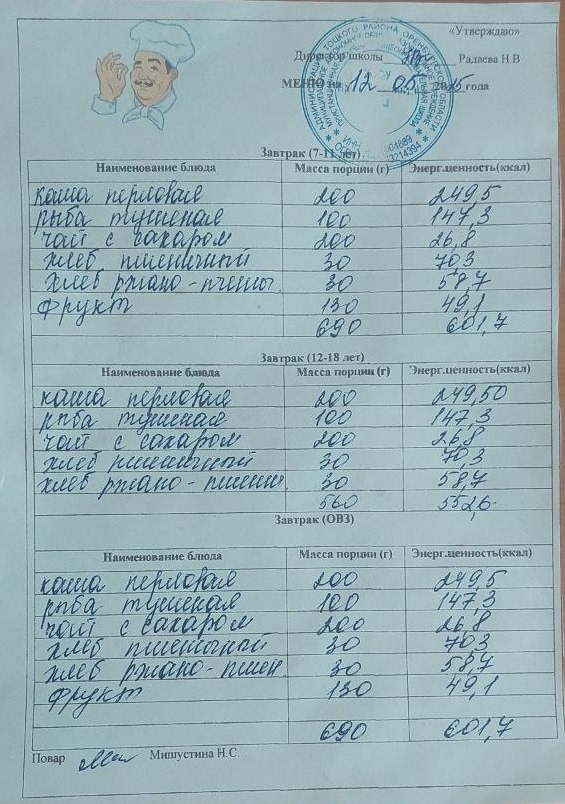 «Утверждаю»
Директор школы Радаева Н.В
МЕНЮ на 12 05 2025 года
АДМИНИСТРАЦИЯ ТОЦКОГО РАЙОНА ОРЕНБУРГСКОЙ ОБЛАСТИ
Завтрак (7-11 лет)
Наименование блюда Масса порции (г) Энерг.ценность(ккал)
каша перловая 200 249,5
рыба тушеная 100 147,3
чай с сахаром 200 26,8
хлеб пшеничный 30 70,3
хлеб ржано-пшены. 30 58,7
фрукт 130 49,1
690 601,7
Завтрак (12-18 лет)
Наименование блюда Масса порции (г) Энерг.ценность(ккал)
каша перловая 200 249,50
рыба тушеная 100 147,3
чай с сахаром 200 26,8
хлеб пшеничный 30 70,3
хлеб ржано-пшенич. 30 58,7
560 552,6
Завтрак (ОВЗ)
Наименование блюда Масса порции (г) Энерг.ценность(ккал)
каша перловая 200 249,5
рыба тушеная 100 147,3
чай с сахаром 200 26,8
хлеб пшеничный 30 70,3
хлеб ржано-пшен. 30 58,7
фрукт 130 49,1
690 601,7
Повар Мишустина Н.С.